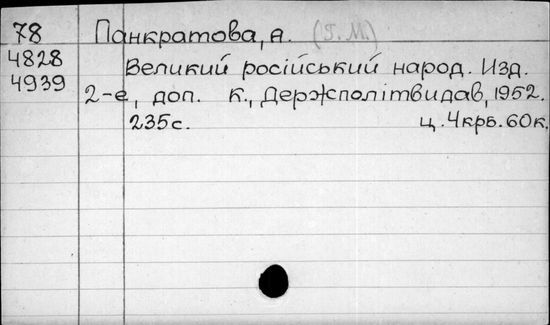 78 Панкратова, А. (Г.М.)
4828 Великий російський народ. Изд.
4939 2-е, доп. К., Держполітвидав, 1952.
235с. ц. 4крб. 60к.